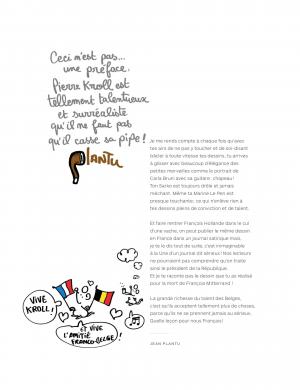 Ceci n'est pas...
une préface.
Pierre Kroll est
tellement talentueux
et surréaliste
qu'il ne faut pas
qu'il casse sa pipe !
PLANTU
Je me rends compte à chaque fois qu'avec
tes airs de ne pas y toucher et de soi-disant
bâcler à toute vitesse tes dessins, tu arrives
à glisser avec beaucoup d'élégance des
petites merveilles comme le portrait de
Carla Bruni avec sa guitare : chapeau !
Ton Sarko est toujours drôle et jamais
méchant. Même ta Marine Le Pen est
presque touchante, ce qui n'enlève rien à
tes dessins pleins de conviction et de talent.
Et faire rentrer François Hollande dans le cul
d'une vache, on peut publier le même dessin
en France dans un journal satirique mais,
je te le dis tout de suite, c'est inimaginable
à la Une d'un journal dit sérieux ! Nos lecteurs
ne pourraient pas comprendre qu'on traite
ainsi le président de la République.
Et je te raconte pas le dessin que tu as réalisé
pour la mort de François Mitterrand !
La grande richesse du talent des Belges,
c'est qu'ils acceptent tellement plus de choses,
parce qu'ils ne se prennent jamais au sérieux.
Quelle leçon pour nous Français !
JEAN PLANTU
VIVE
KROLL !
ET VIVE
L'AMITIÉ
FRANCO-BELGE !